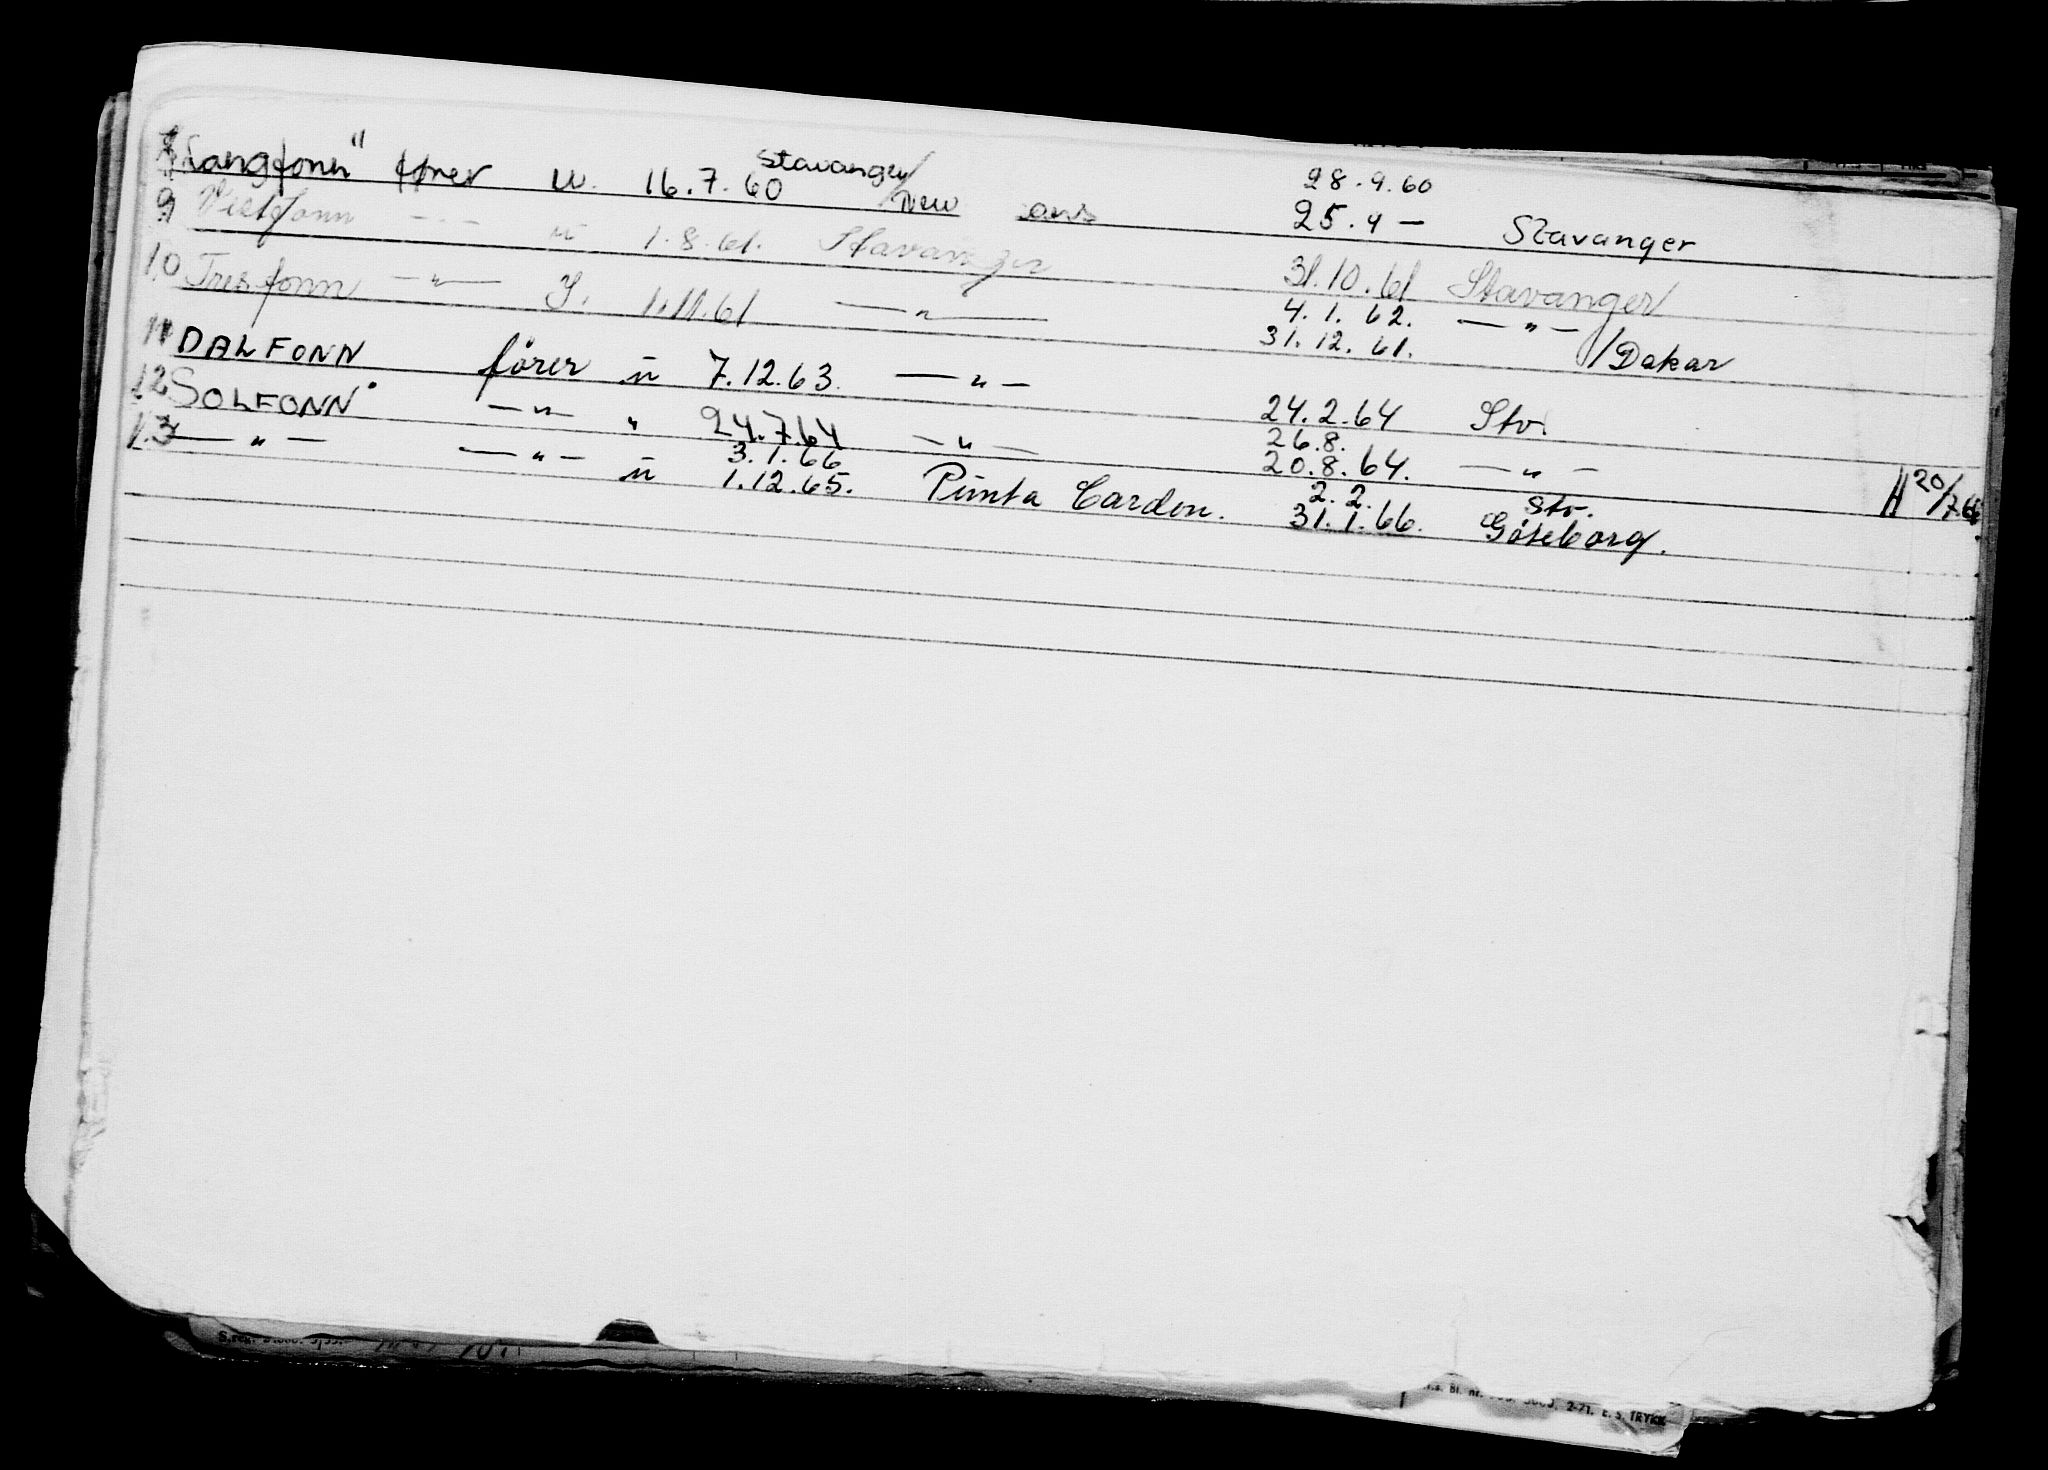 Langfonn" fører u. 16.7.60 Stavanger/ New 28.9.60
25.4 — Stavanger
9 Vestfonn — " — u 1.8.61. Stavanger 31.10.61 Stavanger
10 Tresfonn — " — Y. 1.11.61 — " — 4.1.62. — " — /Dakar
31.12.61.
11 DALFONN förer ū 7.12.63. — " — 24.2.64 Stv.
12 SOLFONN — " — " 24.7.64 — " — 26.8.
20.8.64. — " —
13 — " — — " — ū 3.1.66
1.12.65. Punta Cardon. 2.2. Stv.
31.1.66. Göteborg.
H 20/7.66